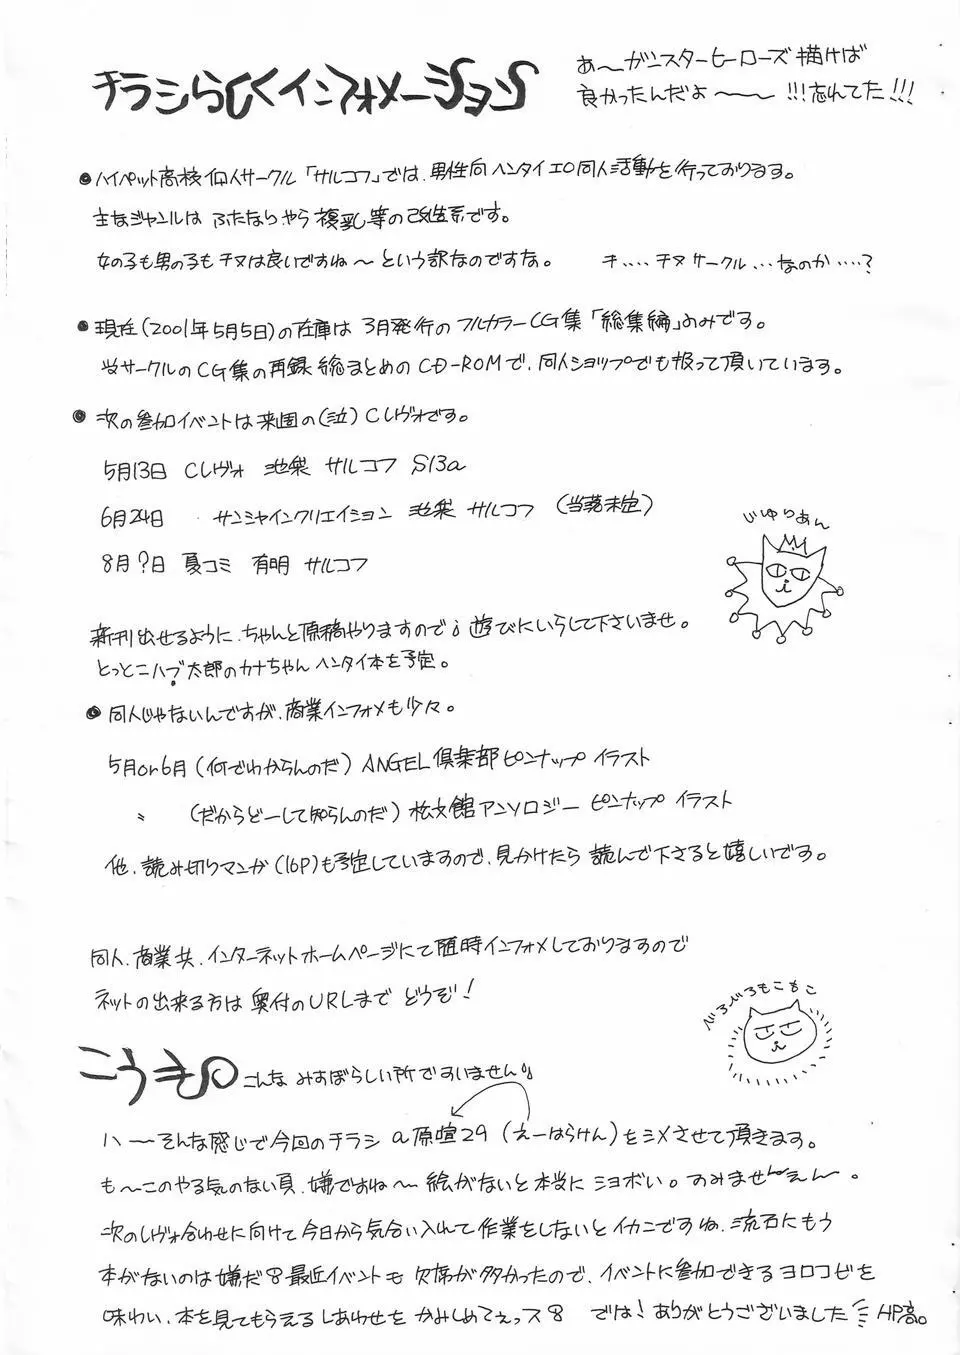 チラシらしくインフォメーション
あ〜ガニスターヒーローズ描けば
良かったんだよ〜〜 !!!忘れてた!!!
●ハイペット高校個人サークル「サルコフ」では、男性向ヘンタイエロ同人活動を行っております。
主なジャンルは ふたなりやら複乳等の改造系です。
女の子も男の子もチヌは良いですね〜という訳なのですな。 チ‥‥チヌサークル…なのか‥‥?
●現在(2001年5月5日)の在庫は 3月発行の フルカラーCG集「総集編」のみです。
当サークルのCG集の再録総まとめのCD-ROMで、同人ショップでも扱って頂いています。
◎次の参加イベントは来週の(泣)Cレヴォです。
5月13日 Cレヴォ 池袋 サルコフ S13a
6月24日 サンシャインクリエイション 池袋 サルコフ (当落未定)
8月?日 夏コミ 有明 サルコフ
じゆりあん
新刊出せるように、ちゃんと原稿やりますので 遊びにいらして下さいませ。
とっとこハブ太郎のカナちゃん ヘンタイ本を予定。
●同人じゃないんですが、商業インフォメも少々。
5月or6月(何でわからんのだ)ANGEL倶楽部ピンナップ イラスト
〃 (だからどーして知らんのだ)松文館アンソロジー ピンナップ イラスト
他、読み切りマンガ(16P)も予定していますので、見かけたら 読んで下さると嬉しいです。
同人、商業共、インターネットホームページにて随時インフォメしておりますので
ネットの出来る方は 奥付のURLまで どうぞ!
べろべろもこもこ
こうき こんな みすぼらしい所ですいません
ハ〜そんな感じで今回のチラシ a原喧29(えーはらけん)をシメさせて頂きます。
も〜このやる気のない頁、嫌ですね〜 絵がないと本当に ショボい。すみませ〜えん〜。
次のレヴォ合わせに向けて今日から気合い入れて作業をしないとイカンですね、流石にもう
本がないのは嫌だ 最近イベントも 欠席が多かったので、イベントに参加できるヨロコビを
味わい、本を見てもらえるしあわせを かみしめてぇっス では!ありがとうございました HP高。